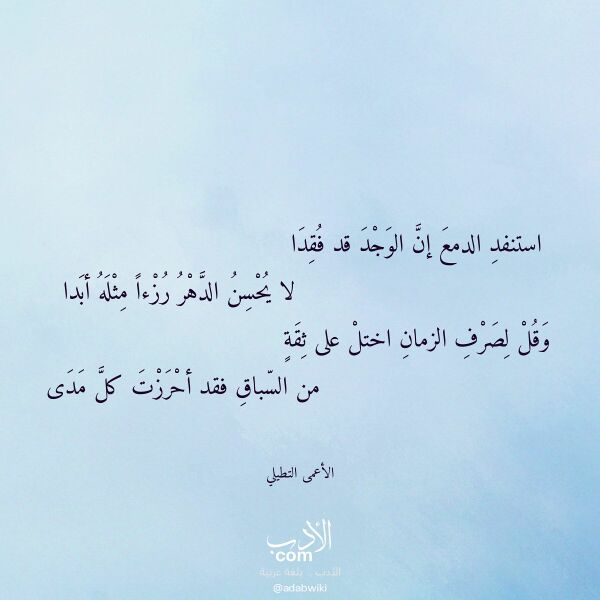 استنفدِ الدمعَ إنَّ الوَجْدَ قد فُقِدَا
لا يُحْسِنُ الدَّهْرُ رُزْءاً مِثْلَهُ أبَدا
وَقُلْ لِصَرْفِ الزمانِ اختلْ على ثِقَةٍ
من السّباقِ فقد أحْرَزْتَ كلَّ مَدَى
الأعمى التطيلي
الأدب
com
الأدب .. بلغة عربية
@adabwiki